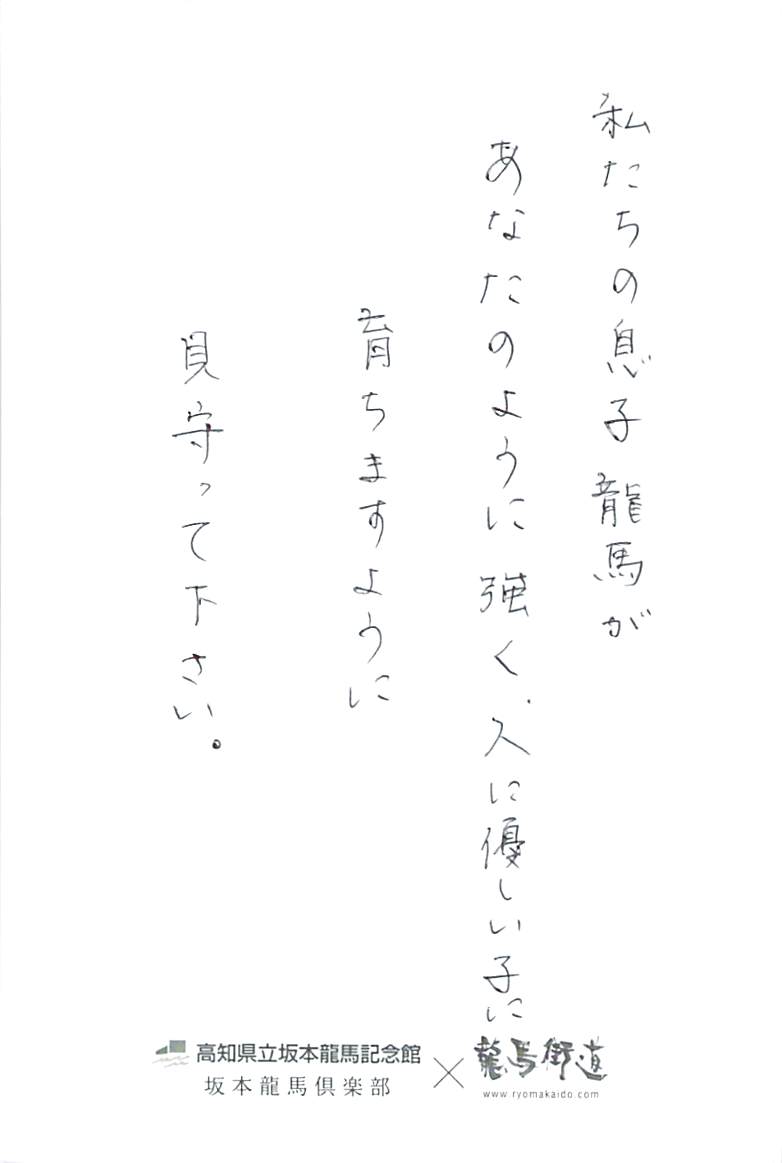 私たちの息子龍馬が
あなたのように強く、人に優しい子に
育ちますように
見守って下さい。
高知県立坂本龍馬記念館
坂本龍馬倶楽部
×
龍馬街道
www.ryomakaido.com